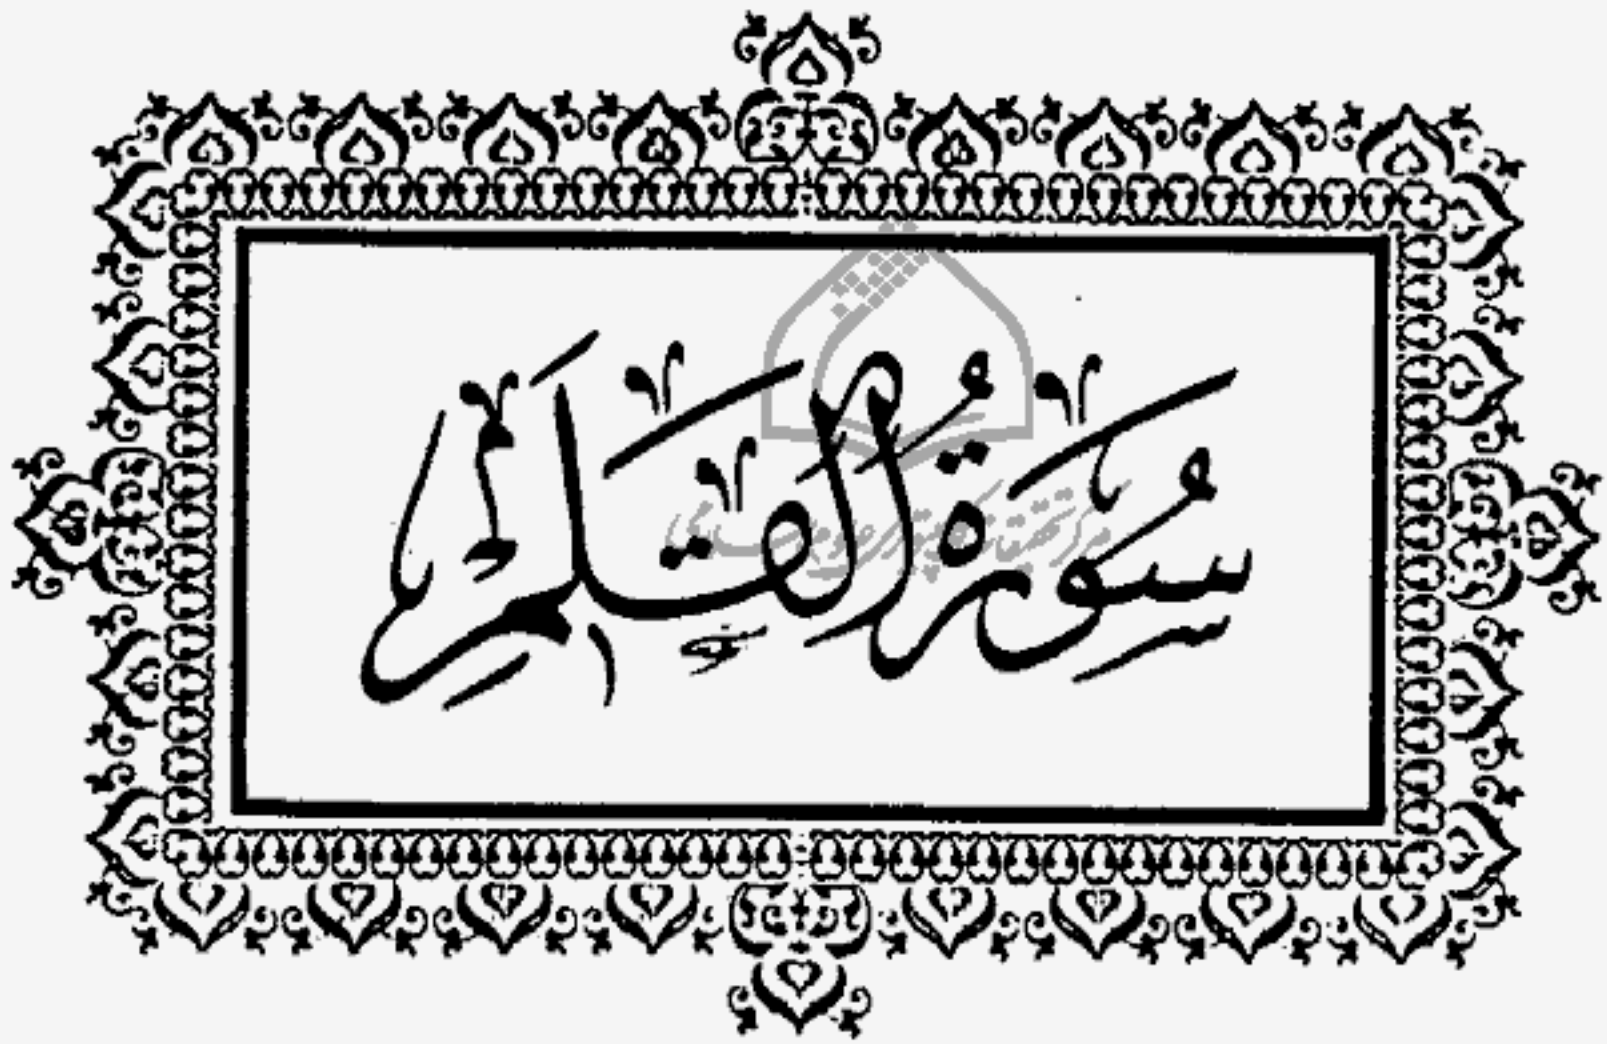 سُورَةُ القَلَمِ